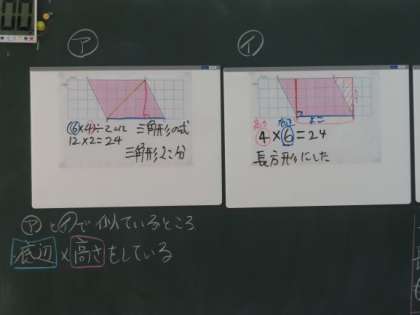 00
㋐
㋑
(6×4)÷2=12 三角形の式
12×2=24
三角形2こ分
高さ よこ
4×6=24
長方形にした
㋐と㋑で似ているところ
底辺×高さをしている